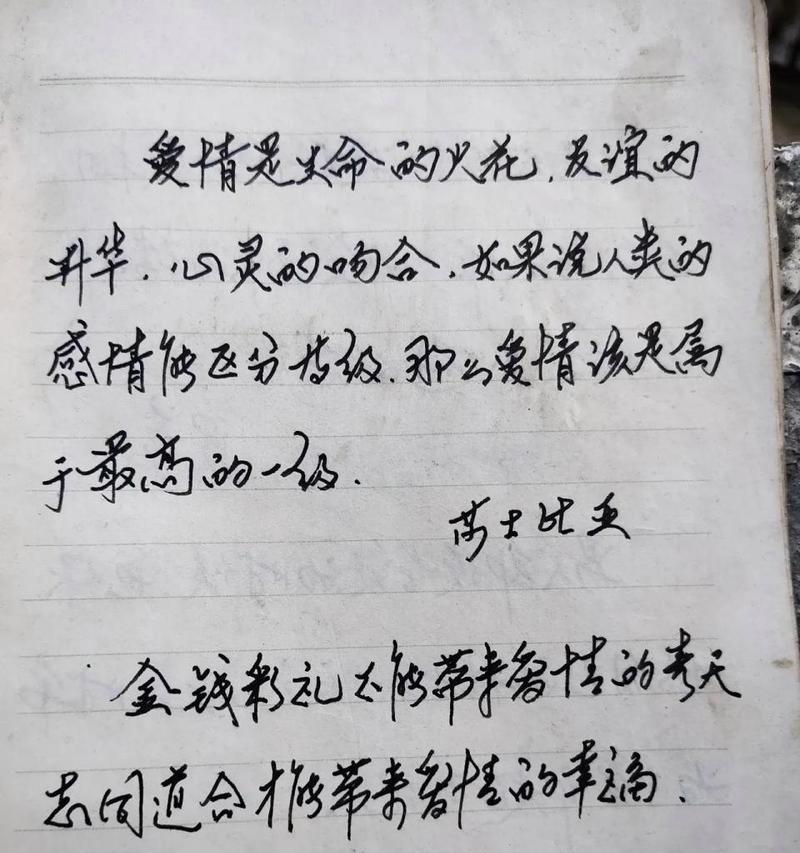 爱情是生命的火花,友谊的
升华,心灵的吻合,如果说人类的
感情能区分等级,那么爱情该是属
于最高的一级.
莎士比亚
金钱彩礼不能带来爱情的春天
志同道合才能带来爱情的幸福.